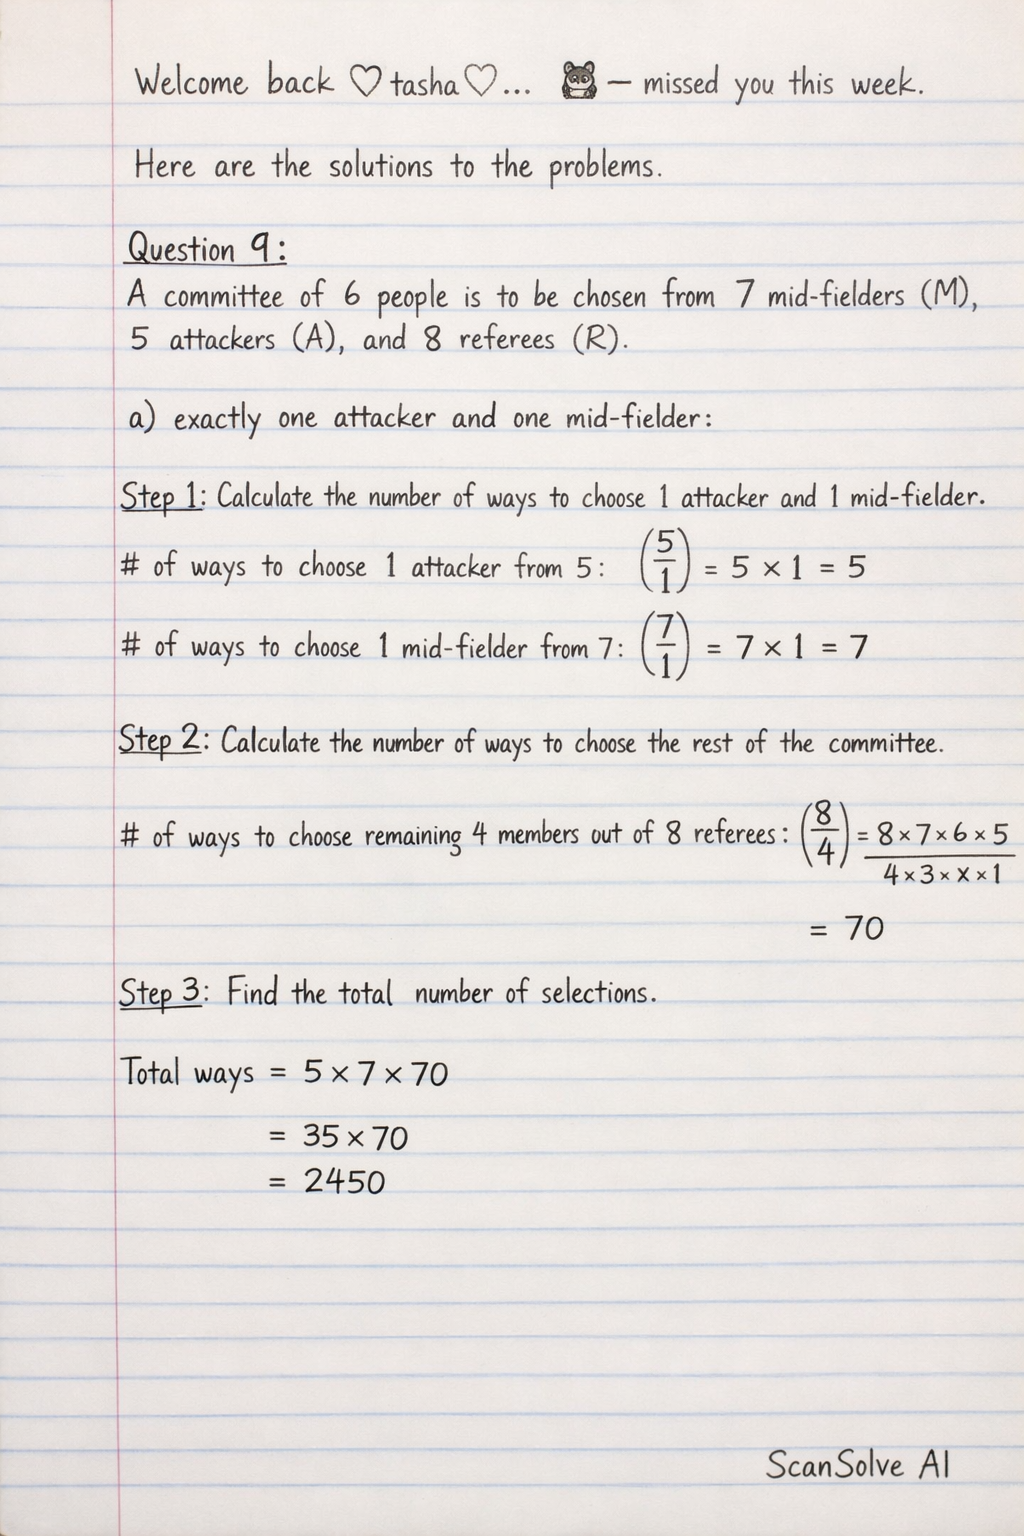 Welcome back ♡ tasha ♡... — missed you this week.
Here are the solutions to the problems.
Question 9:
A committee of 6 people is to be chosen from 7 mid-fielders (M),
5 attackers (A), and 8 referees (R).
a) exactly one attacker and one mid-fielder:
Step 1: Calculate the number of ways to choose 1 attacker and 1 mid-fielder.
# of ways to choose 1 attacker from 5: (5/1) = 5 × 1 = 5
# of ways to choose 1 mid-fielder from 7: (7/1) = 7 × 1 = 7
Step 2: Calculate the number of ways to choose the rest of the committee.
# of ways to choose remaining 4 members out of 8 referees: (8/4) = 8×7×6×5
4×3×x×1
= 70
Step 3: Find the total number of selections.
Total ways = 5 × 7 × 70
= 35 × 70
= 2450
ScanSolve AI